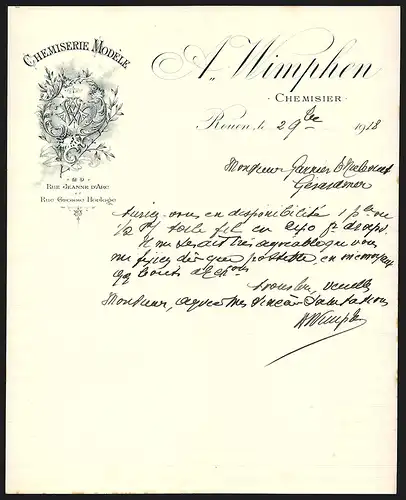 Chemiserie Modèle
Rue Jeanne d'Arc
et
Rue Grosse Horloge
A. Wimphen
Chemisier
Rouen, le 29 1918
Monsieur Garnier
Gérardmer
Auriez vous en disponibilité 1 pce ou
1/2 toile fil en 240 pr draps.
Il me serait très agréable que vous
me fixiez dès que possible, en
qq bouts
veuillez
Monsieur, agréer mes sincères salutations
AWimphen